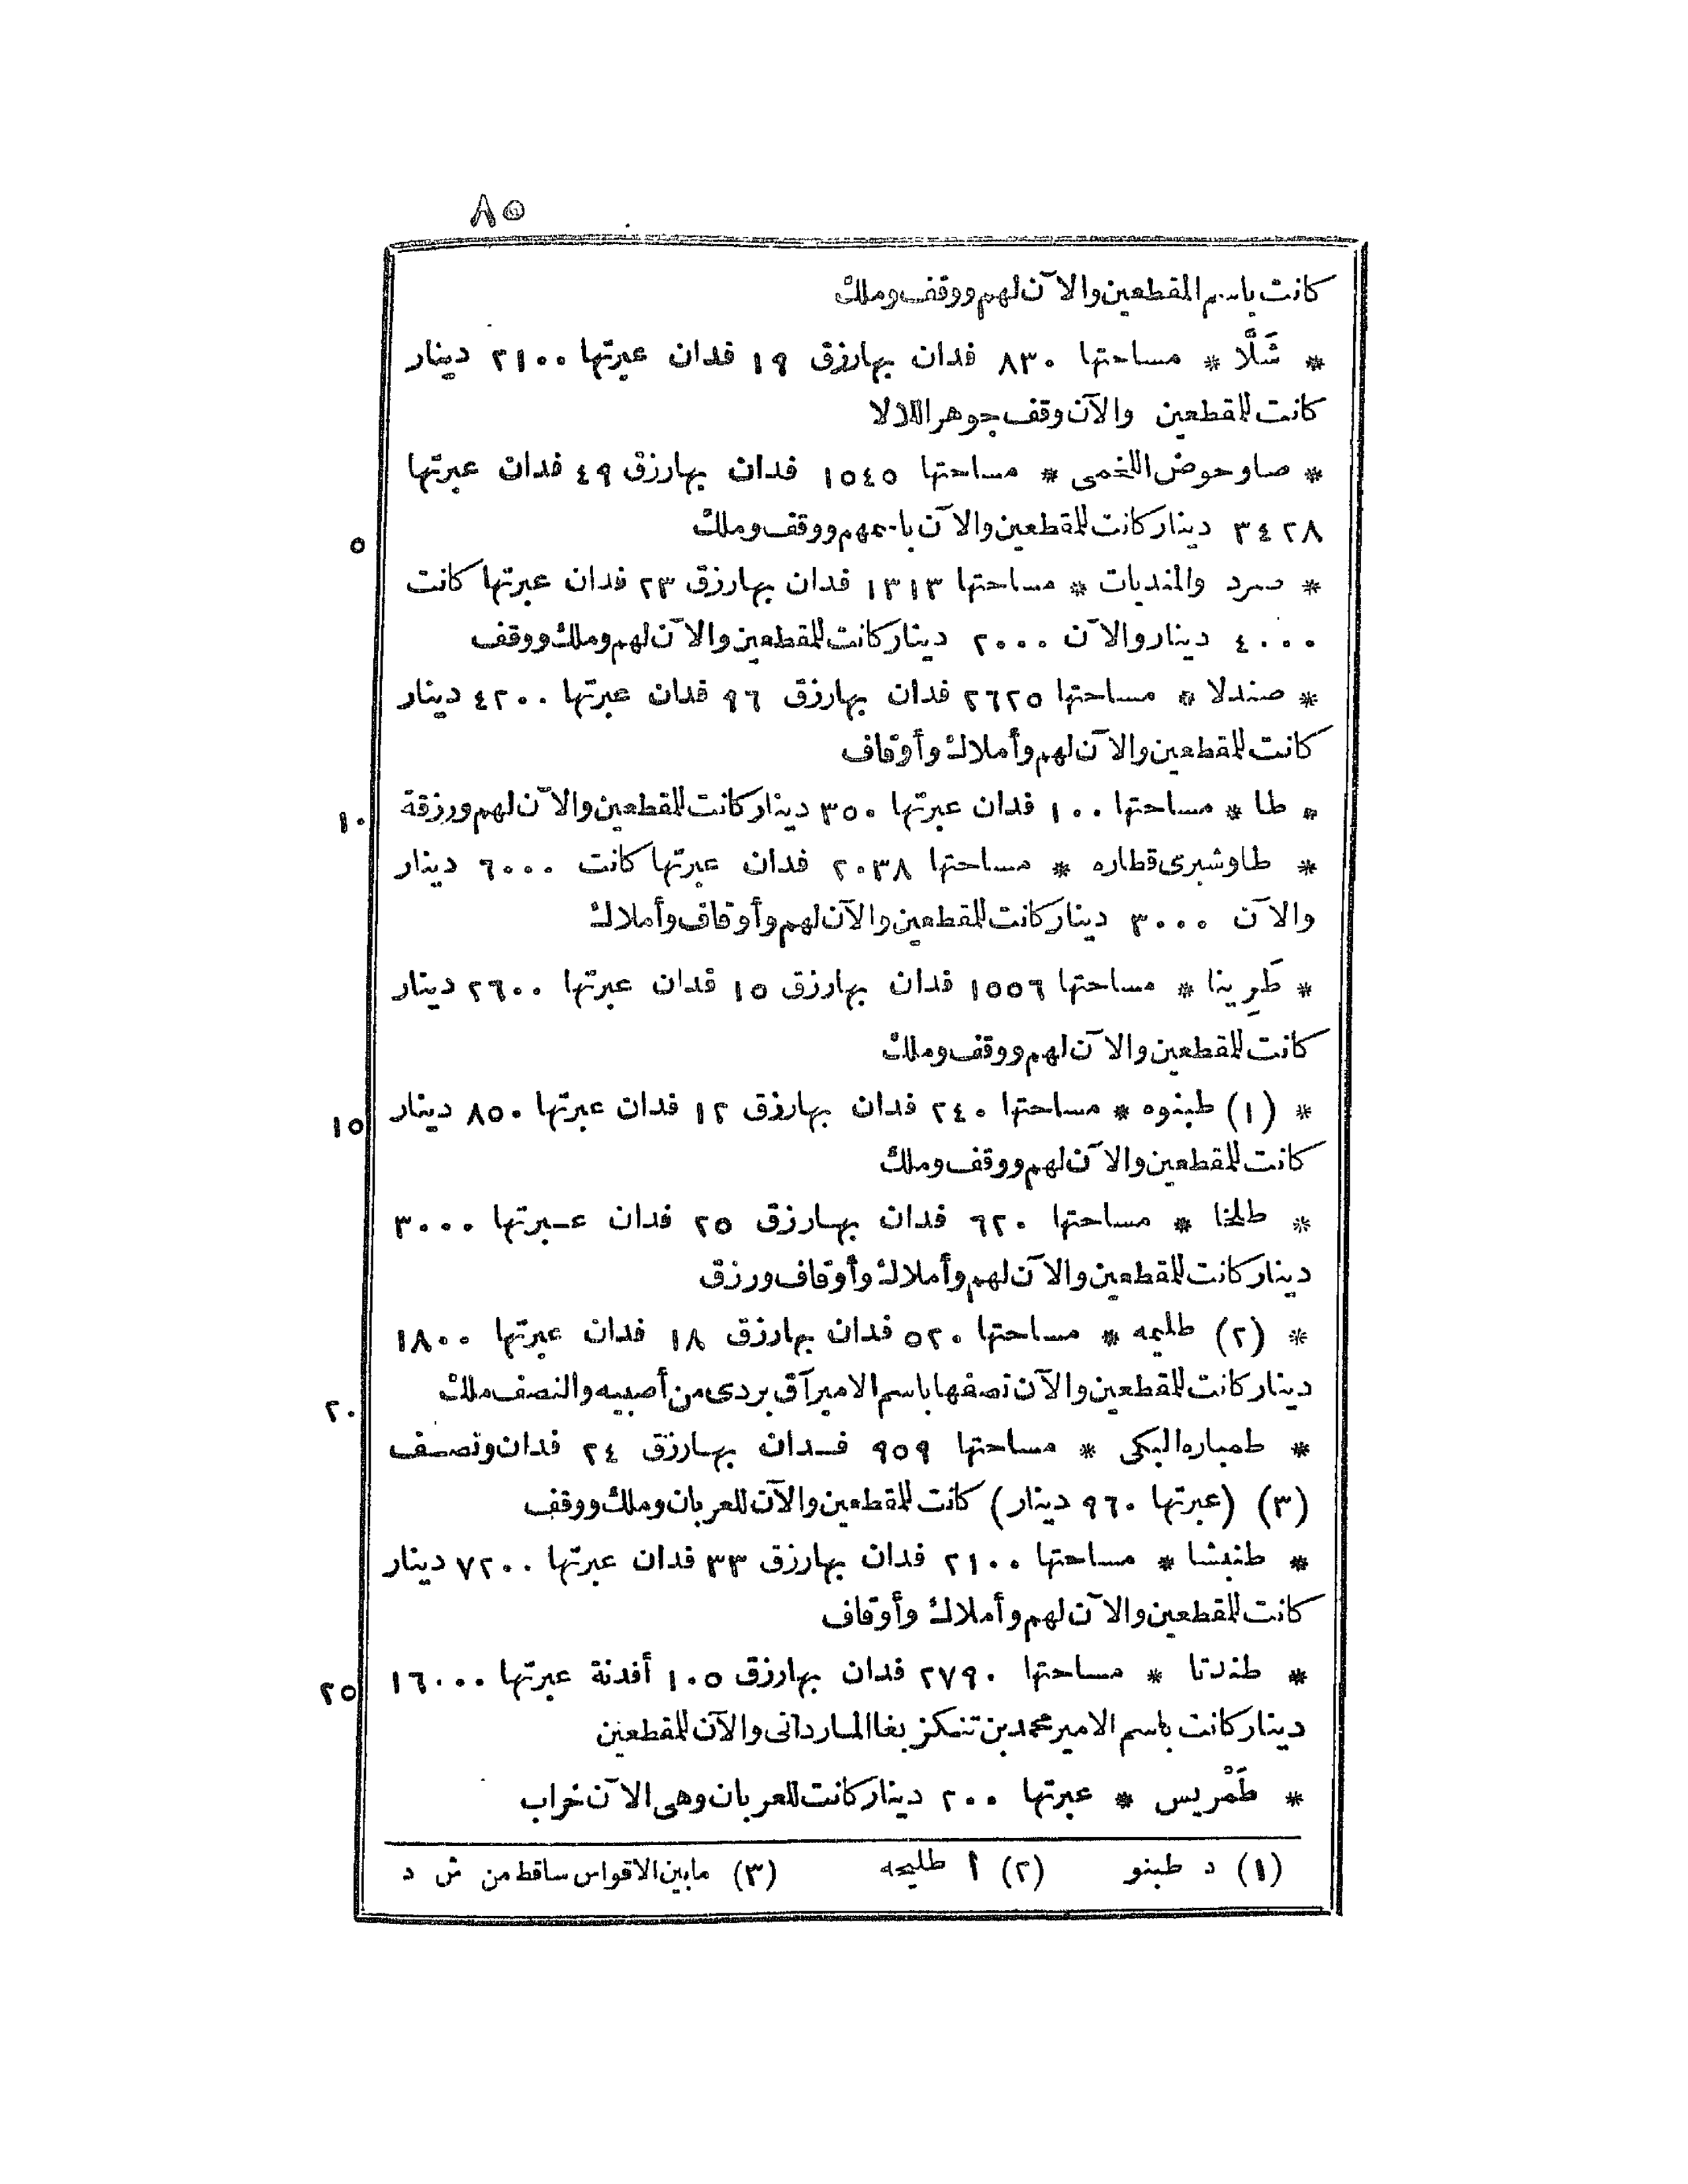 ٨٥
كانت باسم المقطعين والآن لهم ووقف وملك
* شَلَّا * مساحتها ٨٣٠ فدان بها رزق ١٩ فدان عبرتها ٢١٠٠ دينار
كانت للمقطعين والآن وقف جوهر اللالا
* صا وحوض اللخمى * مساحتها ١٥٤٥ فدان بها رزق ٤٩ فدان عبرتها
٣٤٢٨ دينار كانت للمقطعين والآن باسمهم ووقف وملك
٥
* صرد والمنديات * مساحتها ١٣١٣ فدان بها رزق ٢٣ فدان عبرتها كانت
٤٠٠٠ دينار والآن ٢٠٠٠ دينار كانت للمقطعين والآن لهم وملك ووقف
* صندلا * مساحتها ٢٦٢٥ فدان بها رزق ٩٦ فدان عبرتها ٤٢٠٠ دينار
كانت للمقطعين والآن لهم وأملاك وأوقاف
* طا * مساحتها ١٠٠ فدان عبرتها ٣٥٠ دينار كانت للمقطعين والآن لهم ورزقة
١٠
* طا وشبرى قطاره * مساحتها ٢٠٣٨ فدان عبرتها كانت ٦٠٠٠ دينار
والآن ٣٠٠٠ دينار كانت للمقطعين والآن لهم وأوقاف وأملاك
* طَرِينا * مساحتها ١٥٥٦ فدان بها رزق ١٥ فدان عبرتها ٢٦٠٠ دينار
كانت للمقطعين والآن لهم ووقف وملك
* (١) طبنوه * مساحتها ٢٤٠ فدان بها رزق ١٢ فدان عبرتها ٨٥٠ دينار
١٥
كانت للمقطعين والآن لهم ووقف وملك
* طلخا * مساحتها ٦٢٠ فدان بها رزق ٢٥ فدان عبرتها ٣٠٠٠
دينار كانت للمقطعين والآن لهم وأملاك وأوقاف ورزق
* (٢) طليمه * مساحتها ٥٢٠ فدان بها رزق ١٨ فدان عبرتها ١٨٠٠
دينار كانت للمقطعين والآن نصفها باسم الامير آق بردى من أصبيه والنصف ملك
٢٠
* طمباره البكى * مساحتها ٩٥٩ فدان بها رزق ٢٤ فدان ونصف
(٣) (عبرتها ٩٦٠ دينار) كانت للمقطعين والآن للعربان وملك ووقف
* طنبشا * مساحتها ٢١٠٠ فدان بها رزق ٣٣ فدان عبرتها ٧٢٠٠ دينار
كانت للمقطعين والآن لهم وأملاك وأوقاف
* طندتا * مساحتها ٢٧٩٠ فدان بها رزق ١٠٥ أفدنة عبرتها ١٦٠٠٠
٢٥
دينار كانت باسم الامير محمد بن تنكز بغا الماردانى والآن للمقطعين
* طَمْريس * عبرتها ٢٠٠ دينار كانت للعربان وهى الآن خراب
(١) د طبنو (٢) ا طليحه (٣) ما بين الاقواس ساقط من ش د